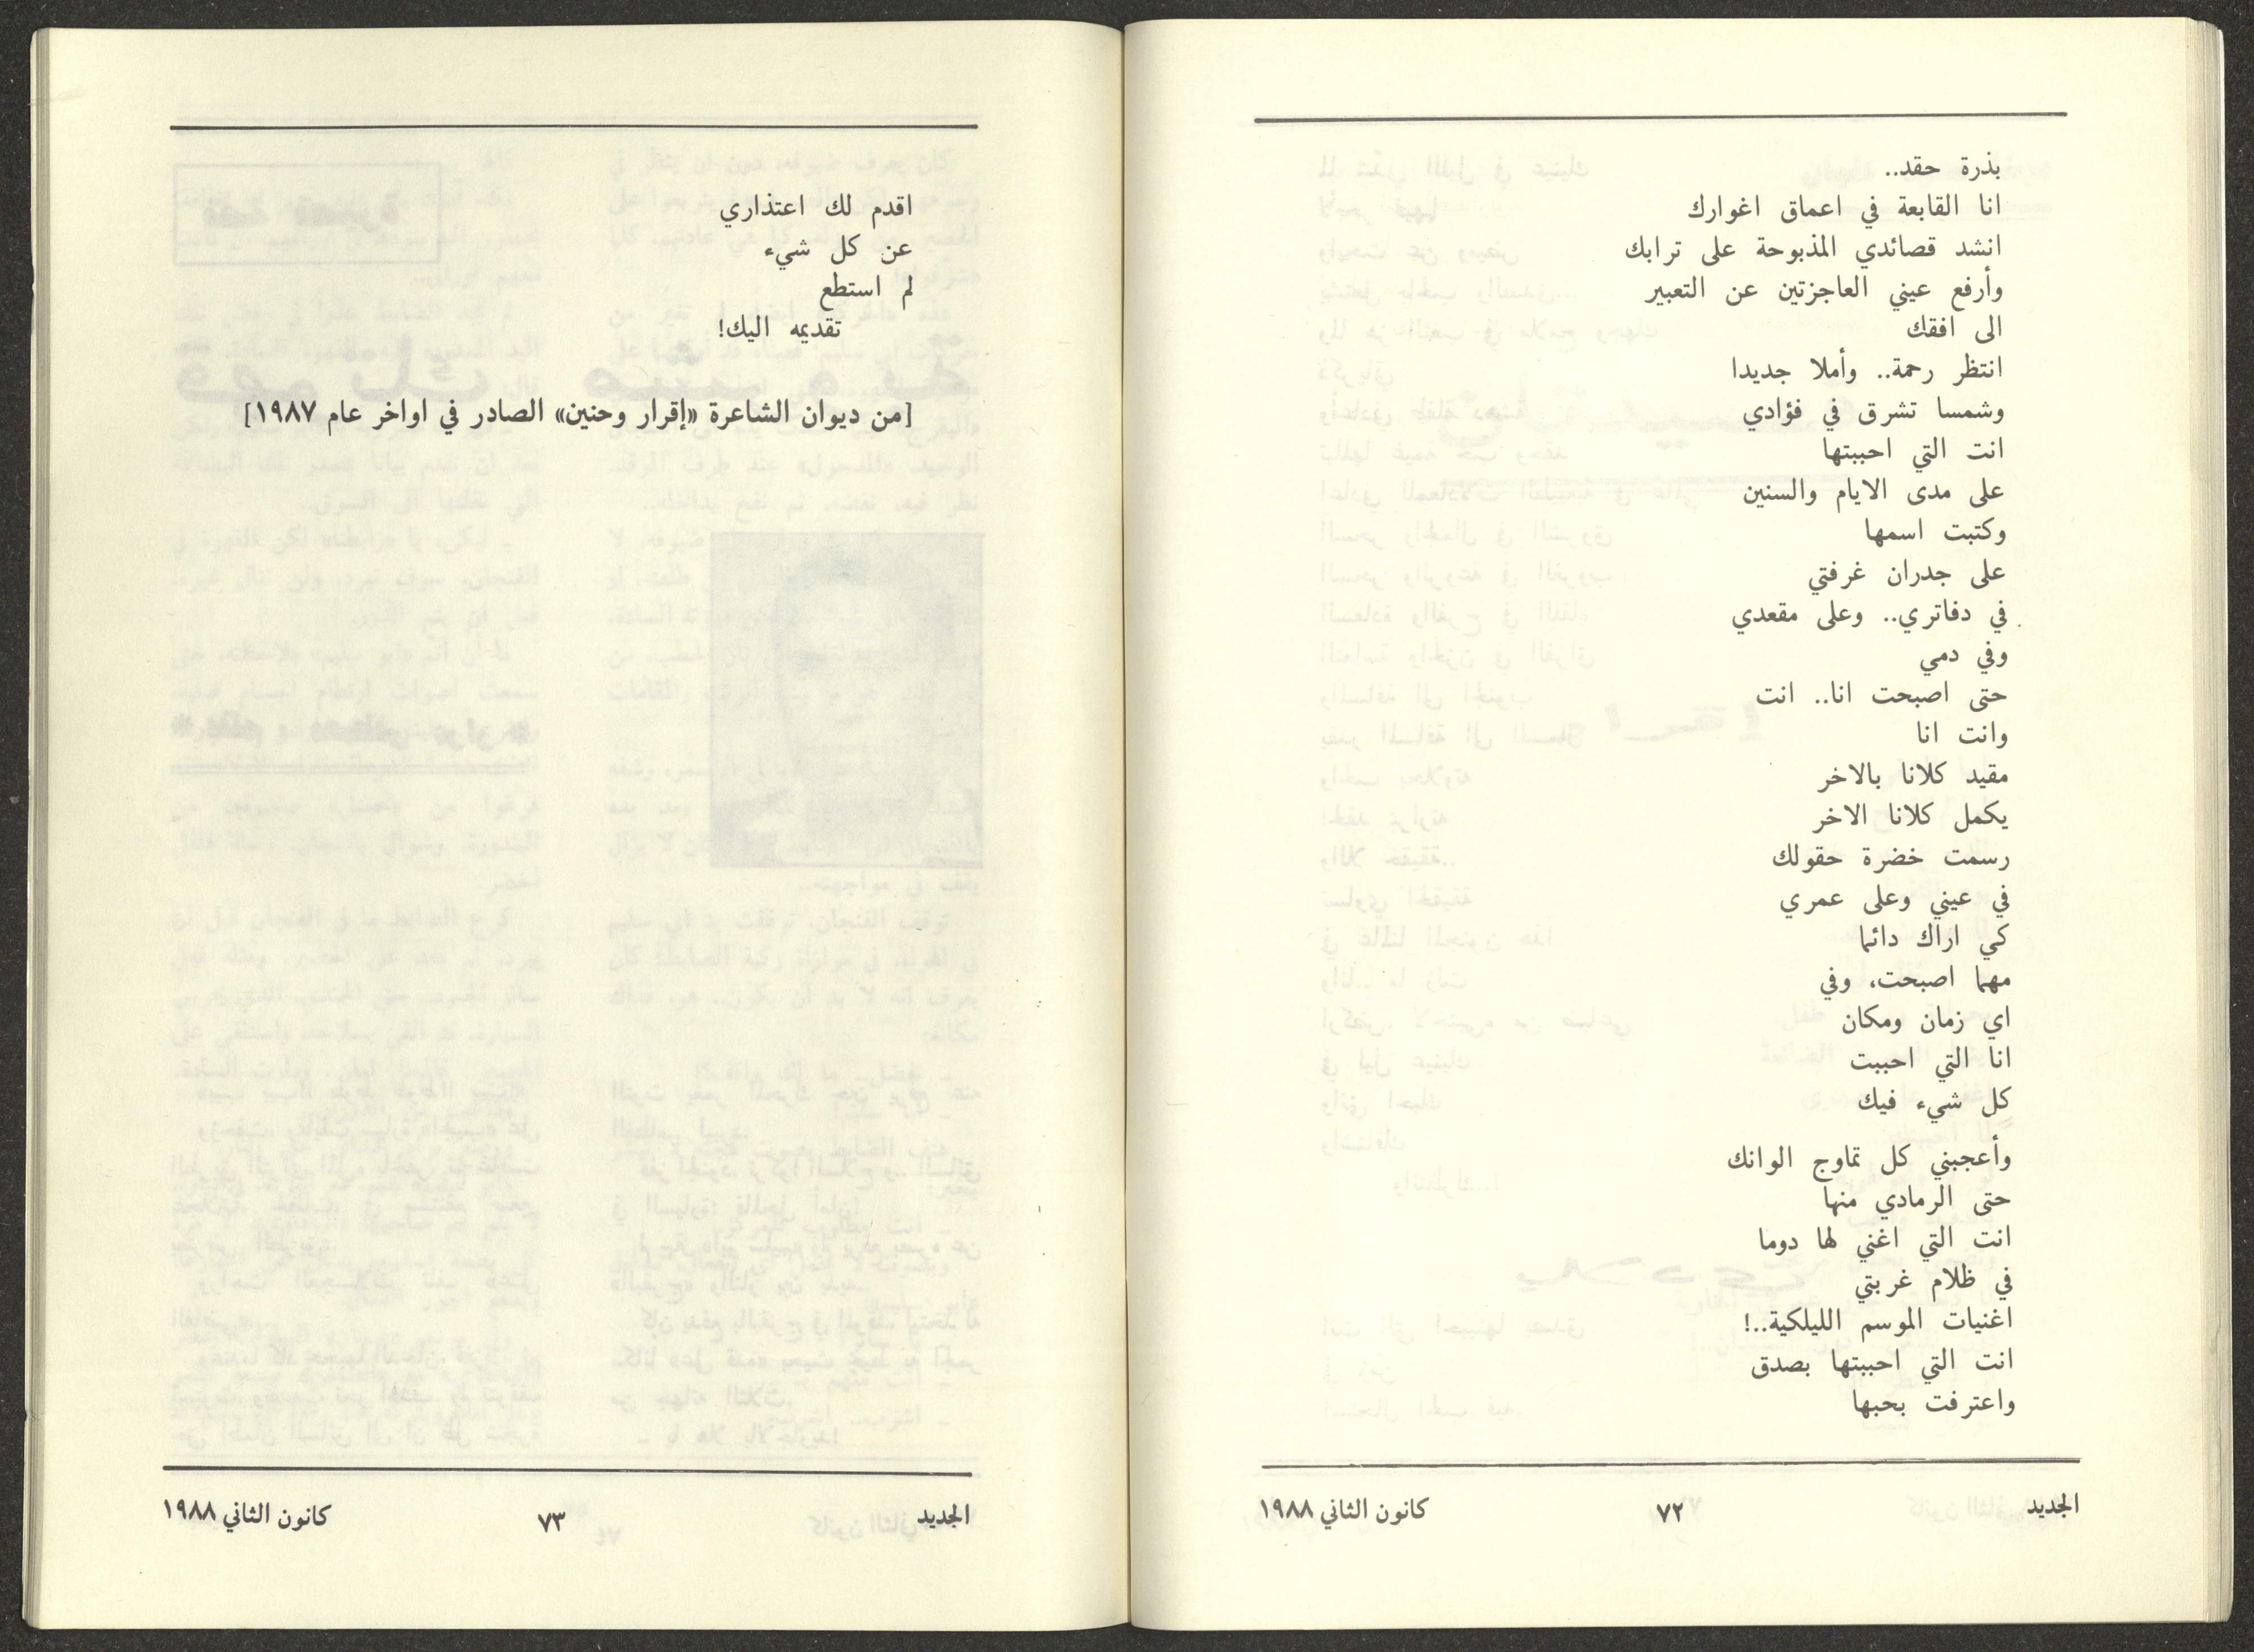 بذرة حقد..
انا القابعة في اعماق اغوارك
انشد قصائدي المذبوحة على ترابك
وأرفع عيني العاجزتين عن التعبير
الى افقك
انتظر رحمة.. وأملا جديدا
وشمسا تشرق في فؤادي
انت التي احببتها
على مدى الايام والسنين
وكتبت اسمها
على جدران غرفتي
في دفاتري.. وعلى مقعدي
وفي دمي
حتى اصبحت انا.. انت
وانت انا
مقيد كلانا بالاخر
يكمل كلانا الاخر
رسمت خضرة حقولك
في عيني وعلى عمري
كي اراك دائما
مهما اصبحت، وفي
اي زمان ومكان
انا التي احببت
كل شيء فيك
وأعجبني كل تماوج الوانك
حتى الرمادي منها
انت التي اغني لها دوما
في ظلام غربتي
اغنيات الموسم الليلكية..!
انت التي احببتها بصدق
واعترفت بحبها
الجديد ٧٢ كانون الثاني ١٩٨٨
اقدم لك اعتذاري
عن كل شيء
لم استطع
تقديمه اليك!
[من ديوان الشاعرة «إقرار وحنين» الصادر في اواخر عام ١٩٨٧]
الجديد ٧٣ كانون الثاني ١٩٨٨